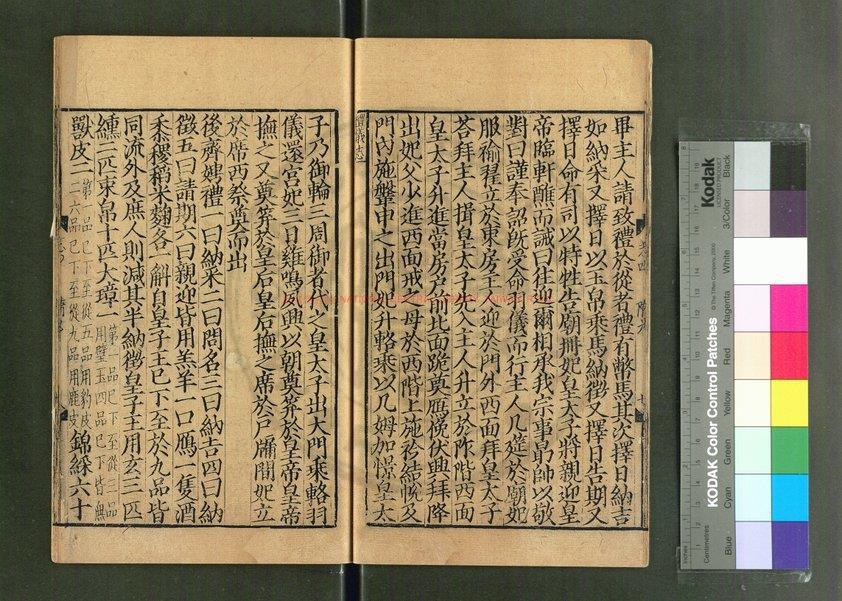 畢主人請致禮於從者禮有幣馬其次擇日納吉
如納采又擇日以玉帛乘馬納徵又擇日告期又
擇日命有司以特牲告廟冊妃皇太子將親迎皇
帝臨軒醮而誡曰往迎爾相承我宗事勗帥以敬
對曰謹奉詔既受命羽儀而行主人几筵於廟妃
服褕翟立於東房主人迎於門外西面拜皇太子
荅拜主人揖皇太子先入主人升立於阼階西面
皇太子升進當房戶前北面跪奠鴈俛伏興拜降
出妃父少進西面戒之母於西階上施衿結帨及
門內施鞶申之出門妃升輅乘以几姆加憬皇太
禮儀志
子乃御輪三周御者代之皇太子出大門乘輅羽
儀還宮妃三日雞鳴夙興以朝奠笲於皇帝皇帝
撫之又奠笲於皇后皇后撫之席於戶牖間妃立
於席西祭奠而出
後齊娉禮一曰納采二曰問名三曰納吉四曰納
徵五曰請期六曰親迎皆用羔羊一口鴈一隻酒
黍稷稻米麵各一斛自皇子王已下至於九品皆
同流外及庶人則減其半納徵皇子王用玄三匹
纁二匹束帛十匹大璋一第一品已下至從三品用璧玉四品已下皆無
獸皮二第一品已下至從五品用豹皮二六品已下至從九品用鹿皮錦綵六十
Kodak
LICENSED PRODUCT
KODAK Color Control Patches
© The Tiffen Company, 2000
Black
3/Color
White
Magenta
Red
Yellow
Green
Cyan
Blue
Inches
Centimetres